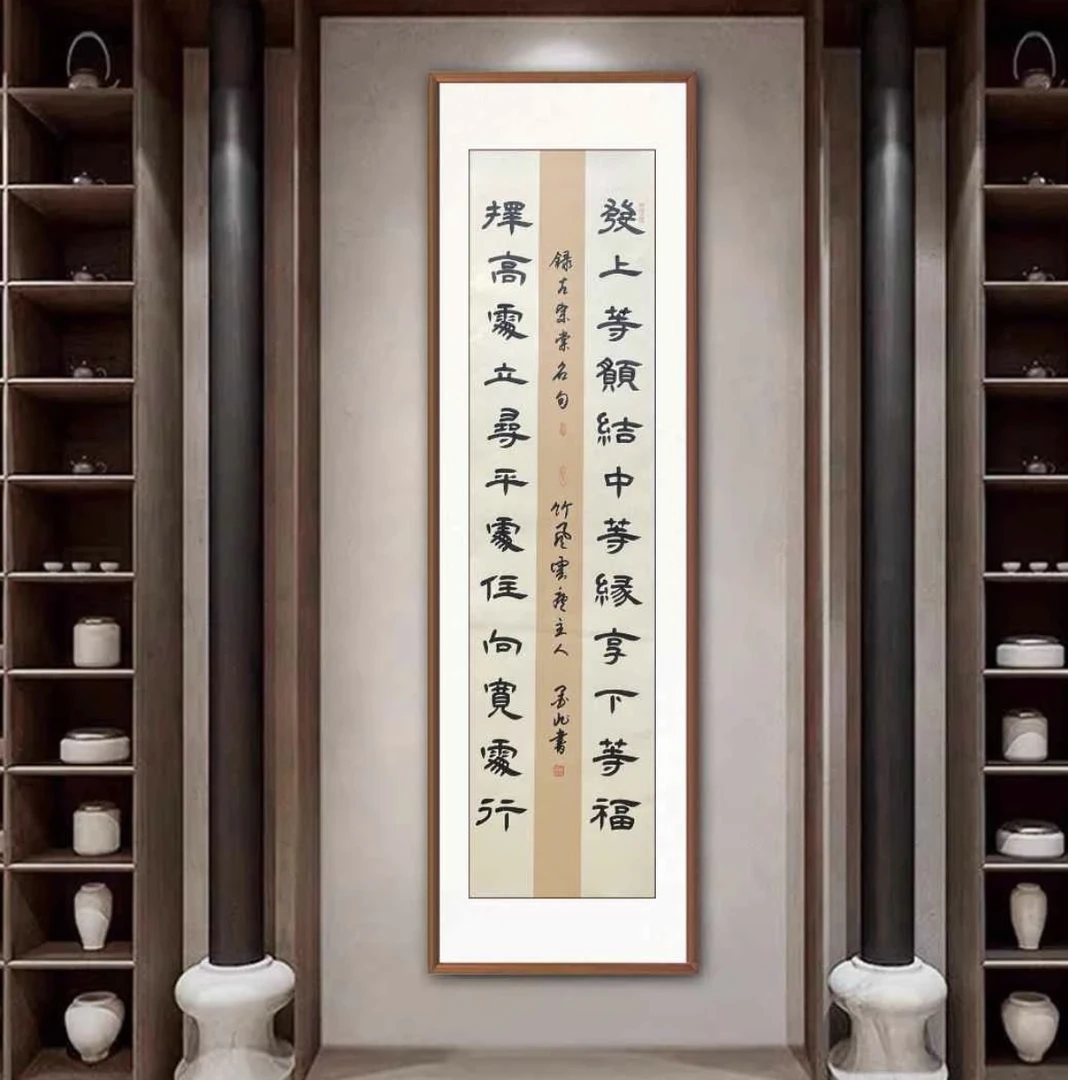 發上等願結中等緣享下等福
錄左宗棠名句 竹風雲庵主人 墨此書
擇高處立尋平處住向寬處行